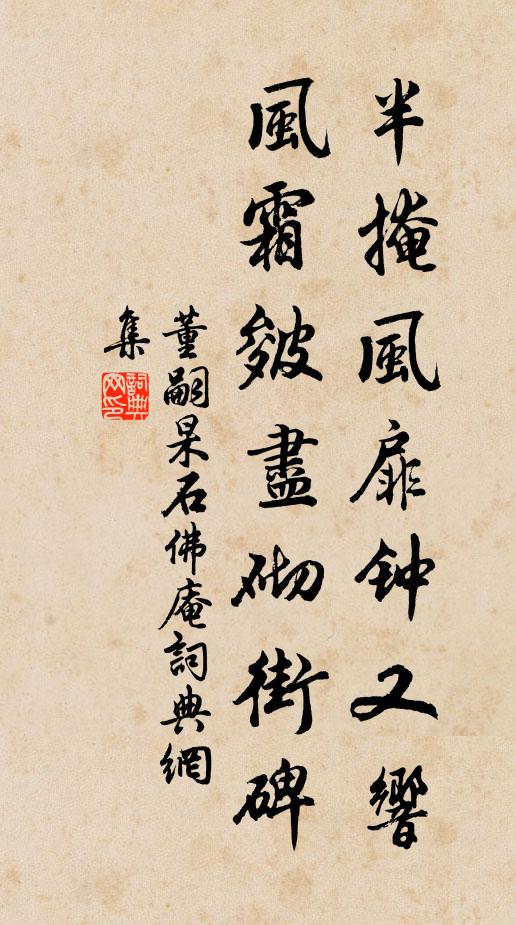 半掩風扉钟又響
風霜皴盡砌街碑
董嗣杲石佛庵詞典網
集
詞典
网印